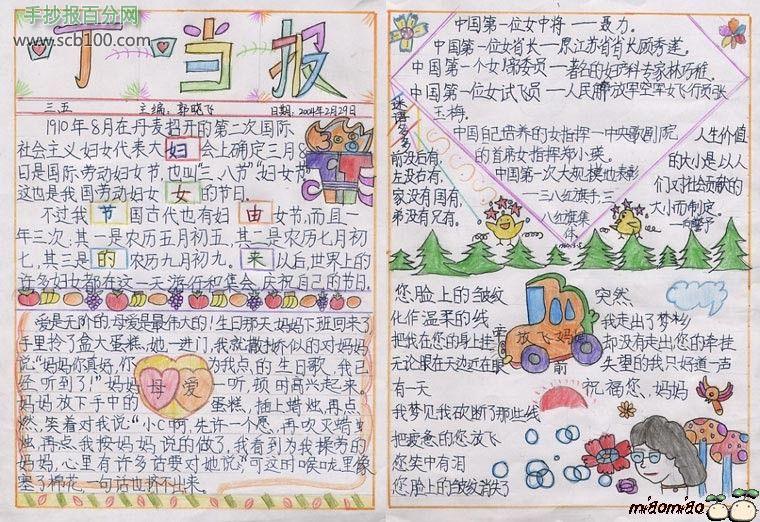 手抄报百分网
www.scb100.com
叮当报
三五 主编:郭晓飞 日期:2004年2月29日
1910年8月在丹麦招开的第二次国际
社会主义妇女代表大妇会上确定三月8
日是国际劳动妇女节,也叫“三八节”“妇女节”
这也是我国劳动妇女女的节日.
不过我节国古代也有妇由女节,而且一
年三次:其一是农历五月初五,其二是农历七月初
七,其三是的农历九月初九。来以后,世界上的
许多妇女都在这一天游行和集会,庆祝自己的节日.
爱是无价的.母爱是最伟大的!生日那天,妈妈下班回来了
手里拎了盒大蛋糕,她一进门,我就撒娇似的对妈妈
说“妈妈你真好,你为我点的生日歌,我已
经听到了!”妈妈母爱一听,顿时高兴起来。
妈妈放下手中的蛋糕,插上蜡烛,再点
燃,笑着对我说“小C啊,先许一个愿,再吹灭蜡
烛,再点,我按妈妈说的做了,我看到为我操劳的
妈妈,心里有许多话要对她说,可这时喉咙里像
塞了棉花,一句话也挤不出来。
中国第一位女中将——聂力。
中国第一位女省长——原江苏省省长顾秀莲。
中国第一个女主席委员——著名的妇产科专家林巧稚。
中国第一位女试飞员——人民解放军空军女飞行员张
玉梅。
中国自己培养的女指挥—中央歌剧院
的首席女指挥郑小瑛。
中国第一次大规模地表彰
——三八红旗手,三
八红旗集
体
谜语多多
前没后有,
左没右有,
家没有国有,
弟没有兄有。
人生价值
的大小是以人
们对社会贡献的
大小而制定。
您脸上的皱纹
化作温柔的线
把我在您的身上挂牵
无论眼在天边近在眼前
有一天
我梦见我砍断了那些线
把疲惫的您放飞
您笑中有泪
您脸上的皱纹消失了
放飞妈妈
突然,
我走出了梦乡
却没有走出您的牵挂
失望的我只好道一声
祝福您,妈妈
miaomiao